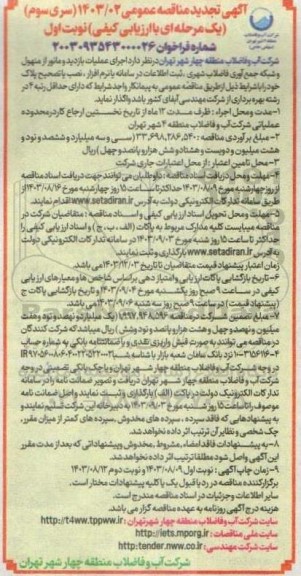 آگهی تجدید مناقصه عمومی ۱۴۰۳/۰۲ (سری سوم)
(یک مرحله ای با ارزیابی کیفی) نوبت اول
شماره فراخوان ۲۰۰۳۰۹۳۵۴۳۰۰۰۰۲۶
شرکت آب و فاضلاب منطقه چهار شهر تهران در نظر دارد اجرای عملیات بازدید و مانور از منهول
و شبکه جمع آوری فاضلاب شهری، ثبت اطلاعات در سامانه یا نرم افزار، نصب یا تصحیح پلاک
خود را با شرایط ذیل از طریق مناقصه عمومی به پیمانکار واجد شرایط که دارای حداقل رتبه ۴ در
رشته بهره برداری از شرکت مهندسی آبفای کشور باشد واگذار نماید.
۱- مدت و محل اجراء: ظرف مدت ۱۲ ماه از تاریخ نخستین ارجاع کار در محدوده
عملیاتی شرکت آب و فاضلاب منطقه ۴ شهر تهران
۲- مبلغ برآوردی مناقصه: ۳۳,۶۹۸,۲۸۶,۵۴۰ (سی و سه میلیارد و ششصد و نود و
هشت میلیون و دویست و هشتاد و شش هزار و پانصد و چهل) ریال
۳- محل تامین اعتبار: از محل اعتبارات جاری شرکت
۴- مهلت و محل دریافت اسناد مناقصه: داوطلبان می توانند جهت دریافت اسناد مناقصه
از روز چهارشنبه مورخ ۱۴۰۳/۰۸/۰۹ حداکثر تا ساعت ۱۵ روز چهارشنبه مورخ ۱۴۰۳/۰۸/۱۶ از
طریق سامانه تدارکات الکترونیکی دولت به آدرس www.setadiran.ir اقدام نمایند.
۵- مهلت و محل تحویل اسناد ارزیابی کیفی و اسناد مناقصه: متقاضیان شرکت در
مناقصه میبایست کلیه مدارک مربوط به پاکات (الف، ب، ج) و اسناد ارزیابی کیفی را
حداکثر تا ساعت ۱۵ روز شنبه مورخ ۱۴۰۳/۰۹/۰۳ در سامانه تدارکات الکترونیکی دولت
به آدرس www.setadiran.ir بارگذاری و ثبت نمایند.
زمان اعتبار پیشنهاد قیمت متقاضیان تا تاریخ ۱۴۰۳/۱۲/۰۳ می باشد.
۶- تاریخ بازگشایی پاکات ارزیابی و امتیازدهی براساس شاخص ها و معیارهای ارزیابی
کیفی در ساعت ۹ صبح روز یک شنبه مورخ ۱۴۰۳/۰۹/۰۴ و تاریخ بازگشایی پاکات ج
(پیشنهاد قیمت) در ساعت ۹ صبح روز سه شنبه ۱۴۰۳/۰۹/۰۶ می باشد.
۷- مبلغ تضمین شرکت در مناقصه ۱,۹۹۷,۹۴۸,۵۹۶ (یک میلیارد و نهصد و نود و هفت
میلیون و نهصد و چهل و هشت هزار و پانصد و نود و شش) ریال میباشد که شرکت کنندگان
در مناقصه می توانند به صورت فیش واریزی نقدی و یا ضمانتنامه بانکی به شماره حساب
در وجه شرکت آب و فاضلاب منطقه چهار شهر تهران و یا چک بانکی تضمینی در وجه
شرکت آب و فاضلاب منطقه چهار شهر تهران دریافت و تصویر ضمانت نامه را در سامانه
تدارکات الکترونیک دولت در پاکت (الف) بارگذاری و ثبت نمایند و اصل ضمانت نامه
موصوف را تا ساعت ۱۵ روز شنبه مورخ ۱۴۰۳/۰۹/۰۳ به دبیرخانه این شرکت تسلیم نمایند و
به پیشنهادهایی که فاقد سپرده، سپرده های مخدوش، سپرده های کمتر از میزان مقرر،
چک شخصی و نظایر آن ترتیب اثر داده نخواهد شد.
۸- به پیشنهادات فاقد امضاء، مشروط، مخدوش و پیشنهاداتی که بعد از مدت مقرر
این آگهی واصل شود مطلقا ترتیب اثر داده نخواهد شد.
۹- زمان چاپ آگهی: نوبت اول ۱۴۰۳/۰۸/۰۹ و نوبت دوم ۱۴۰۳/۰۸/۱۳
برگزار کننده مناقصه در رد یا قبول یک یا کلیه پیشنهادات مختار است.
سایر اطلاعات و جزئیات در اسناد مناقصه مندرج است.
هزینه درج آگهی روزنامه به عهده مناقصه گزار می باشد.
سایت شرکت آب و فاضلاب منطقه چهار شهر تهران: http://t4ww.tppww.ir
سایت ملی مناقصات: http://iets.mporg.ir
سایت شرکت مهندسی: http:tender.nww.co.ir
شرکت آب و فاضلاب منطقه چهار شهر تهران